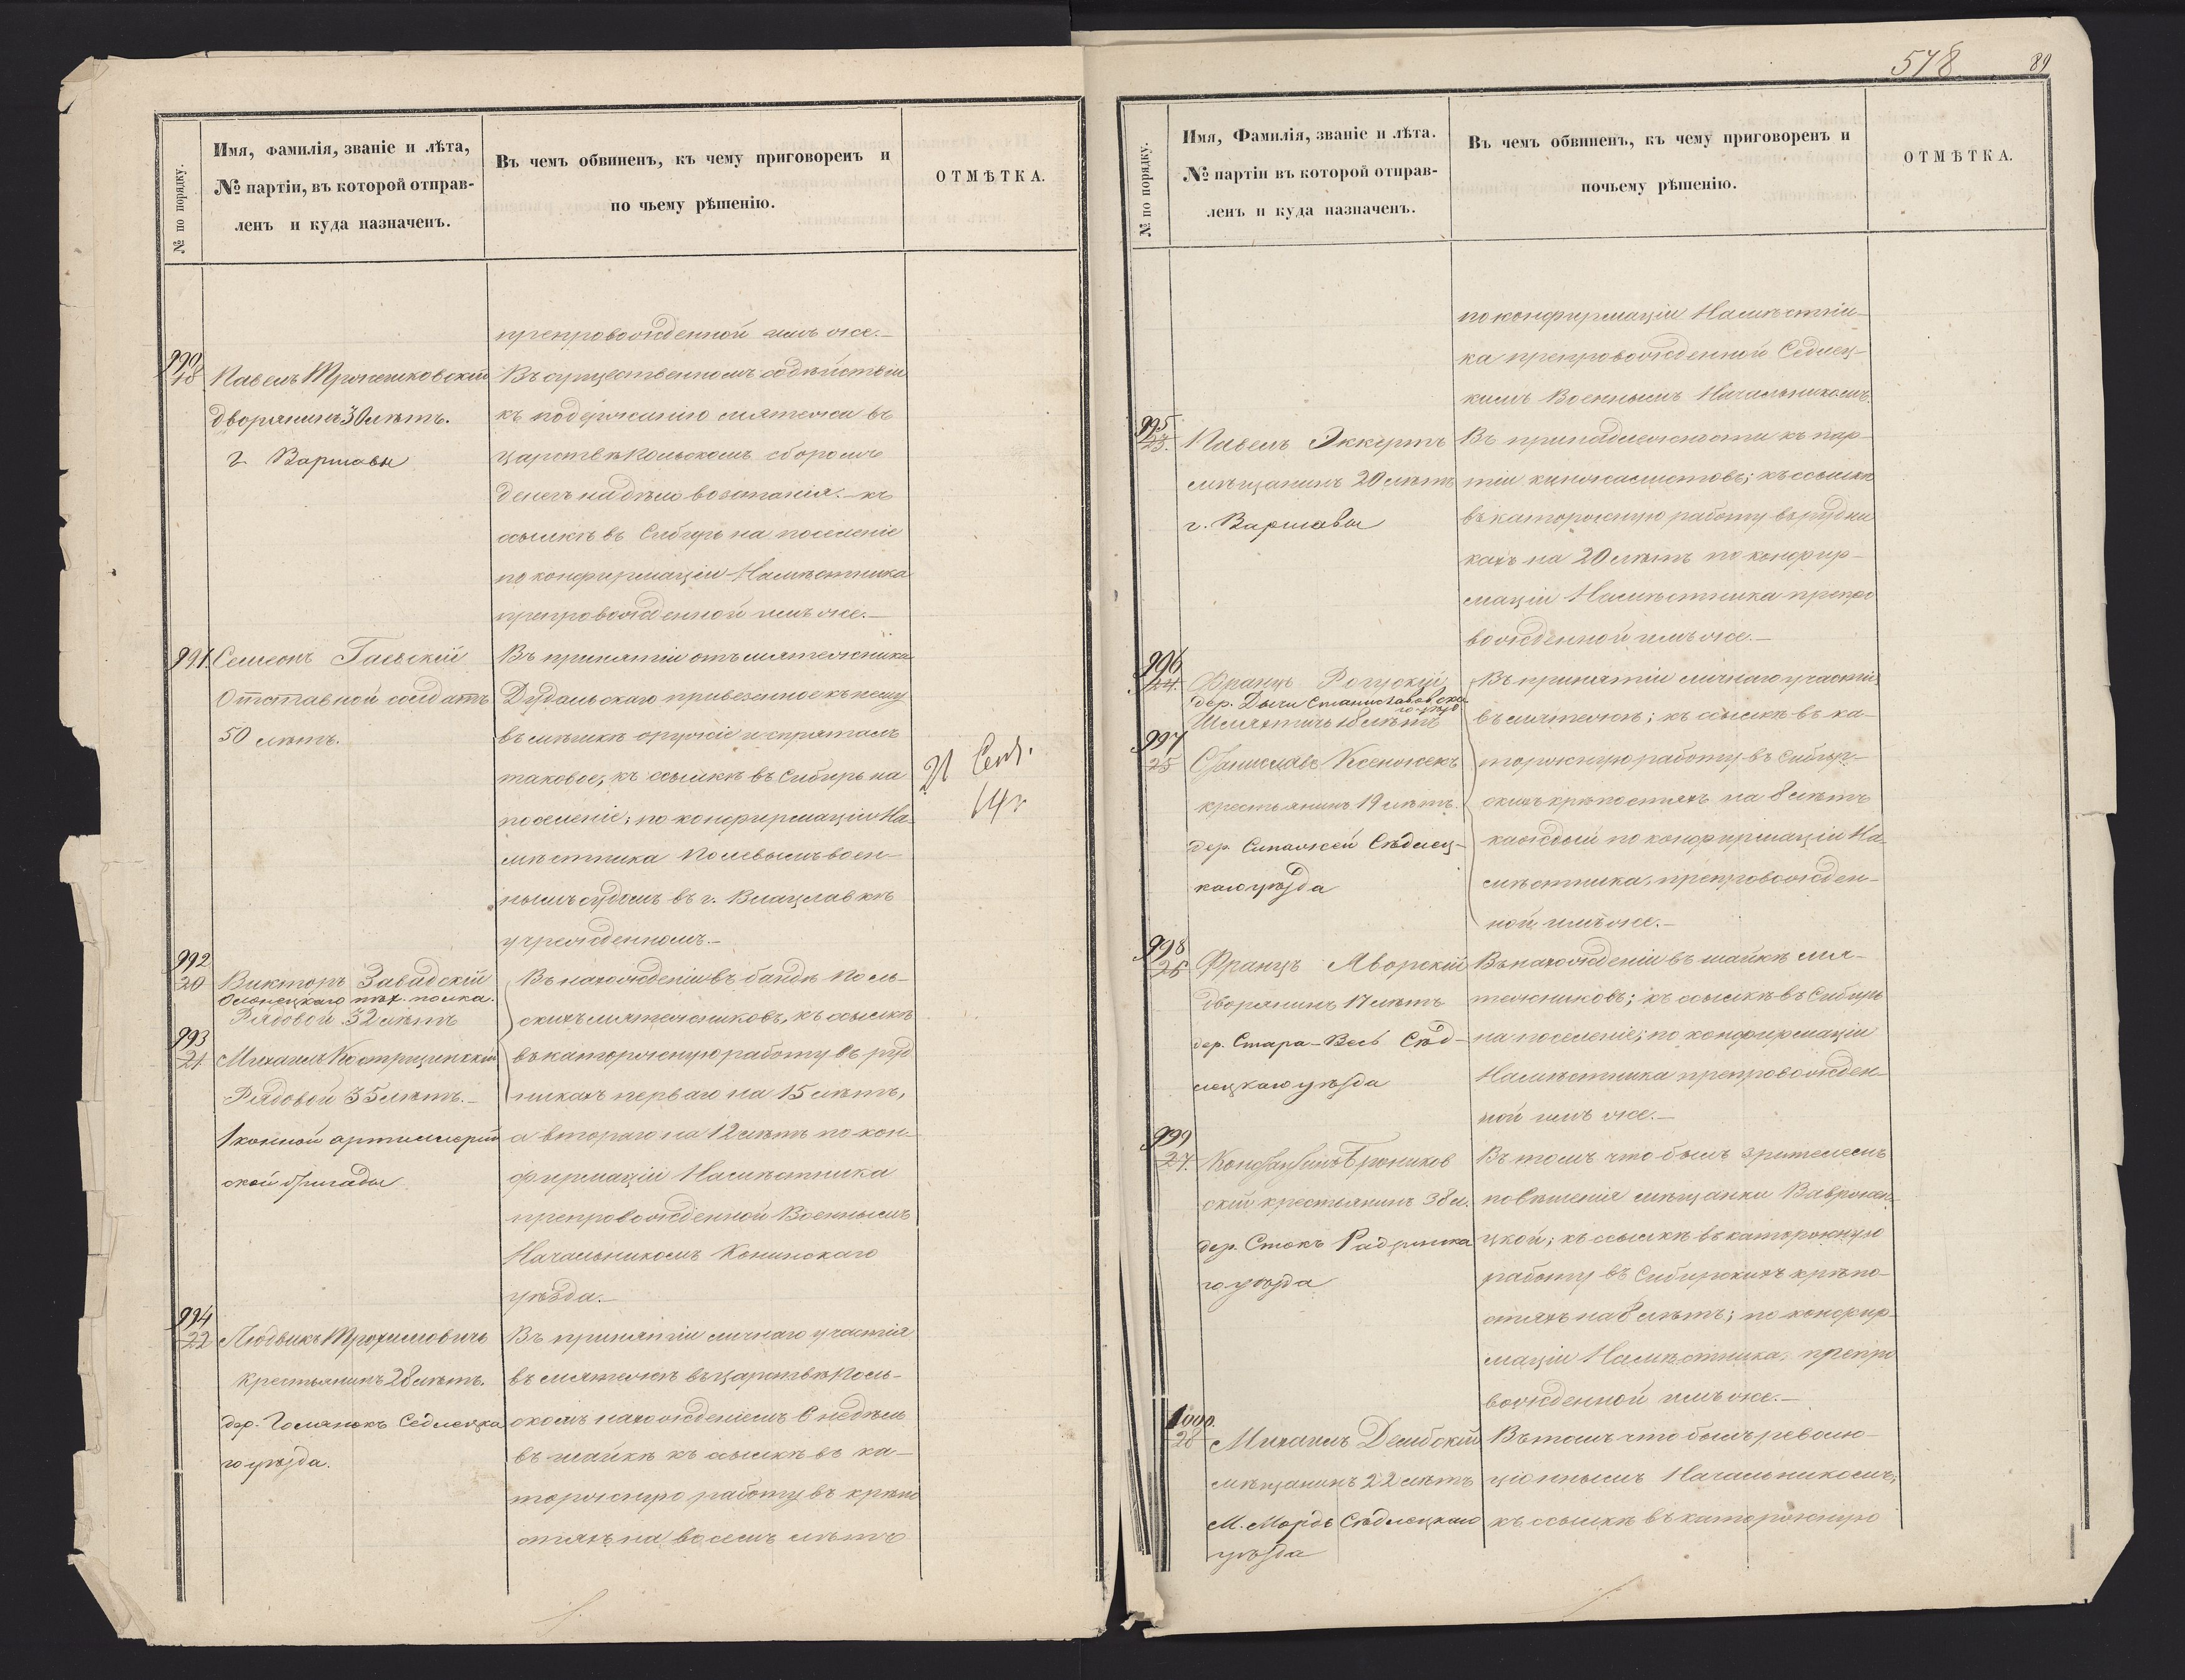 № по порядку.
Имя, фамилія, званіе и лѣта,
№ партіи, въ которой отправ-
ленъ и куда назначенъ.
Въ чемъ обвиненъ, къ чему приговоренъ и
по чьему рѣшенію.
ОТМѢТКА.
препровожденной имъ же.-
990
18
Павелъ
дворянинъ 30 лѣтъ.
г. Варшавы
Въ существенномъ содѣйствіи
къ подержанію мятежа въ
царствѣ Польскомъ сборомъ
денегъ на дѣло возстанія.- къ
ссылкѣ въ Сибирь на поселеніе
по конфирмаціи Намѣстника
препровожденной имъ же.-
991
Семеонъ Гаевскій
Отставной солдатъ
50 лѣтъ.
Въ принятіи отъ мятежника
Дудальскаго привезенное къ нему
въ мѣшкѣ оружіе и спряталъ
таковое, къ ссылкѣ въ Сибирь на
поселеніе; по конфирмаціи На-
мѣстника Полевымъ воен-
нымъ судомъ въ г. Влацлавкѣ
учрежденномъ.-
21 Сент.
64 г.
992
20
Викторъ Завадскій
Олонецкаго пѣх. полка.
Рядовой 32 лѣтъ
993
21
Михаилъ Кострицинскій
Рядовой 35 лѣтъ.-
1 конной артиллерій
ской бригады
Въ нахожденіи въ бандѣ Поль-
скихъ мятежниковъ, къ ссылкѣ
въ каторжную работу въ руд
никахъ перваго на 15 лѣтъ,
а втораго на 12 лѣтъ по кон-
фирмаціи Намѣстника
препровожденной Военнымъ
Начальникомъ Конинскаго
уѣзда.-
994
22
Людвикъ Трохимовичъ
крестьянинъ 28 лѣтъ.
дер. Голянокъ Седлецка
го уѣзда.
Въ принятіи личнаго участія
въ мятежѣ въ царствѣ Поль-
скомъ нахожденіемъ 6 недѣль
въ шайкѣ къ ссылкѣ въ ка-
торжную работу въ крѣпо
стяхъ на восемь лѣтъ
578
89
№ по порядку.
Имя, Фамилія, званіе и лѣта.
№ партіи въ которой отправ-
ленъ и куда назначенъ.
Въ чемъ обвиненъ, къ чему приговоренъ и
почьему рѣшенію.
ОТМѢТКА.
по конфирмаціи Намѣстни-
ка препровожденной Седлец-
кимъ Военнымъ Начальникомъ.
995
23.
Павелъ Эккертъ
мѣщанинъ 20 лѣтъ
г. Варшавы
Въ принадлежности къ пар-
тіи кинжалистовъ; къ ссылкѣ
въ каторжную работу въ рудни
кахъ на 20 лѣтъ по конфир-
маціи Намѣстника препро
вожденной имъ же.-
996
24.
Францъ Рогускій
дер. Дычи Станиславовска
го уѣзд
Шляхтичъ 18 лѣтъ
997
25
Станиславъ Ксенжекъ
крестьянинъ 19 лѣтъ.
дер. Сипажей Сѣдлец-
каго уѣзда
Въ принятіи личнаго участія
въ мятежѣ; къ ссылкѣ въ ка-
торжную работу въ Сибир-
скихъ крѣпостяхъ на 8 лѣтъ
каждый по конфирмаціи На-
мѣстника, препровожден-
ной имъ же.-
998
26
Францъ Яворскій
дворянинъ 17 лѣтъ
дер. Стара-Весь Сѣд-
лецкаго уѣзда
Въ нахожденіи въ шайкѣ мя-
тежниковъ; къ ссылкѣ въ Сибирь
на поселеніе; по конфирмаціи
Намѣстника препровожден-
ной имъ же.-
999
27.
Константинъ Броников
скій крестьянинъ 38 л.
дер. Стокъ Радзинска
го уѣзда
Въ томъ что былъ зрителемъ
повѣшенія мѣщанки Вавржен
цкой; къ ссылкѣ въ каторжную
работу въ Сибирскихъ крѣпо-
стяхъ на 8 лѣтъ; по конфир-
маціи Намѣстника, препро
вожденной имъ же.-
1000.
28
Михаилъ Дембскій
мѣщанинъ 22 лѣтъ
М. Морды Сѣдлецкаго
уѣзда
Въ томъ что былъ револю-
ціоннымъ Начальникомъ;
къ ссылкѣ въ каторжную